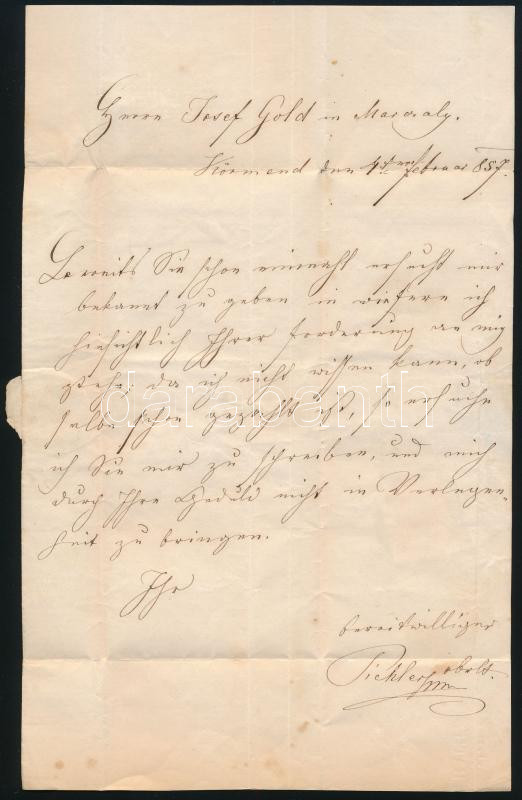 Herrn Josef Gold in Marczaly.
Körmend den 4ten februar 857.
Bereits Sie schon einmahl ersucht mir
bekannt zu geben in wiefern ich
hinsichtlich Ihrer forderung an mich
stehe, da ich nicht wissen kann, ob
selbe schon gezahlt ist, so ersuche
ich Sie mir zu schreiben, und mich
durch Ihre Geduld nicht in Verlegen-
heit zu bringen.
Ihr
bereitwilliger
Pichler oblt.
darabanth